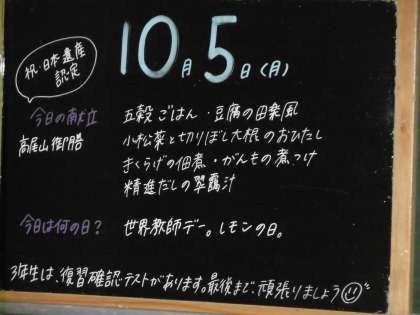 祝・日本遺産
認定
10月5日(月)
今日の献立
高尾山御膳
五穀ごはん・豆腐の田楽風
小松菜と切りぼし大根のおひたし
きくらげの佃煮・がんもの煮つけ
精進だしの翠靄汁
今日は何の日?
世界教師デー。レモンの日。
3年生は、復習確認テストがあります。最後まで、頑張りましょう